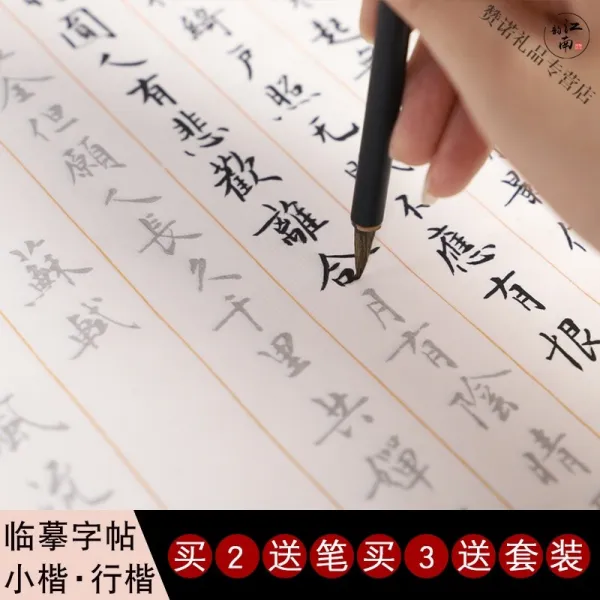 赞诺礼品专营店
江南韵
起
綺戶照无眠不應有恨
圓人有悲歡離合月有陰晴
全但願人長久千里共嬋
蘇軾
流
临摹字帖
小楷·行楷
买2送笔买3送套装